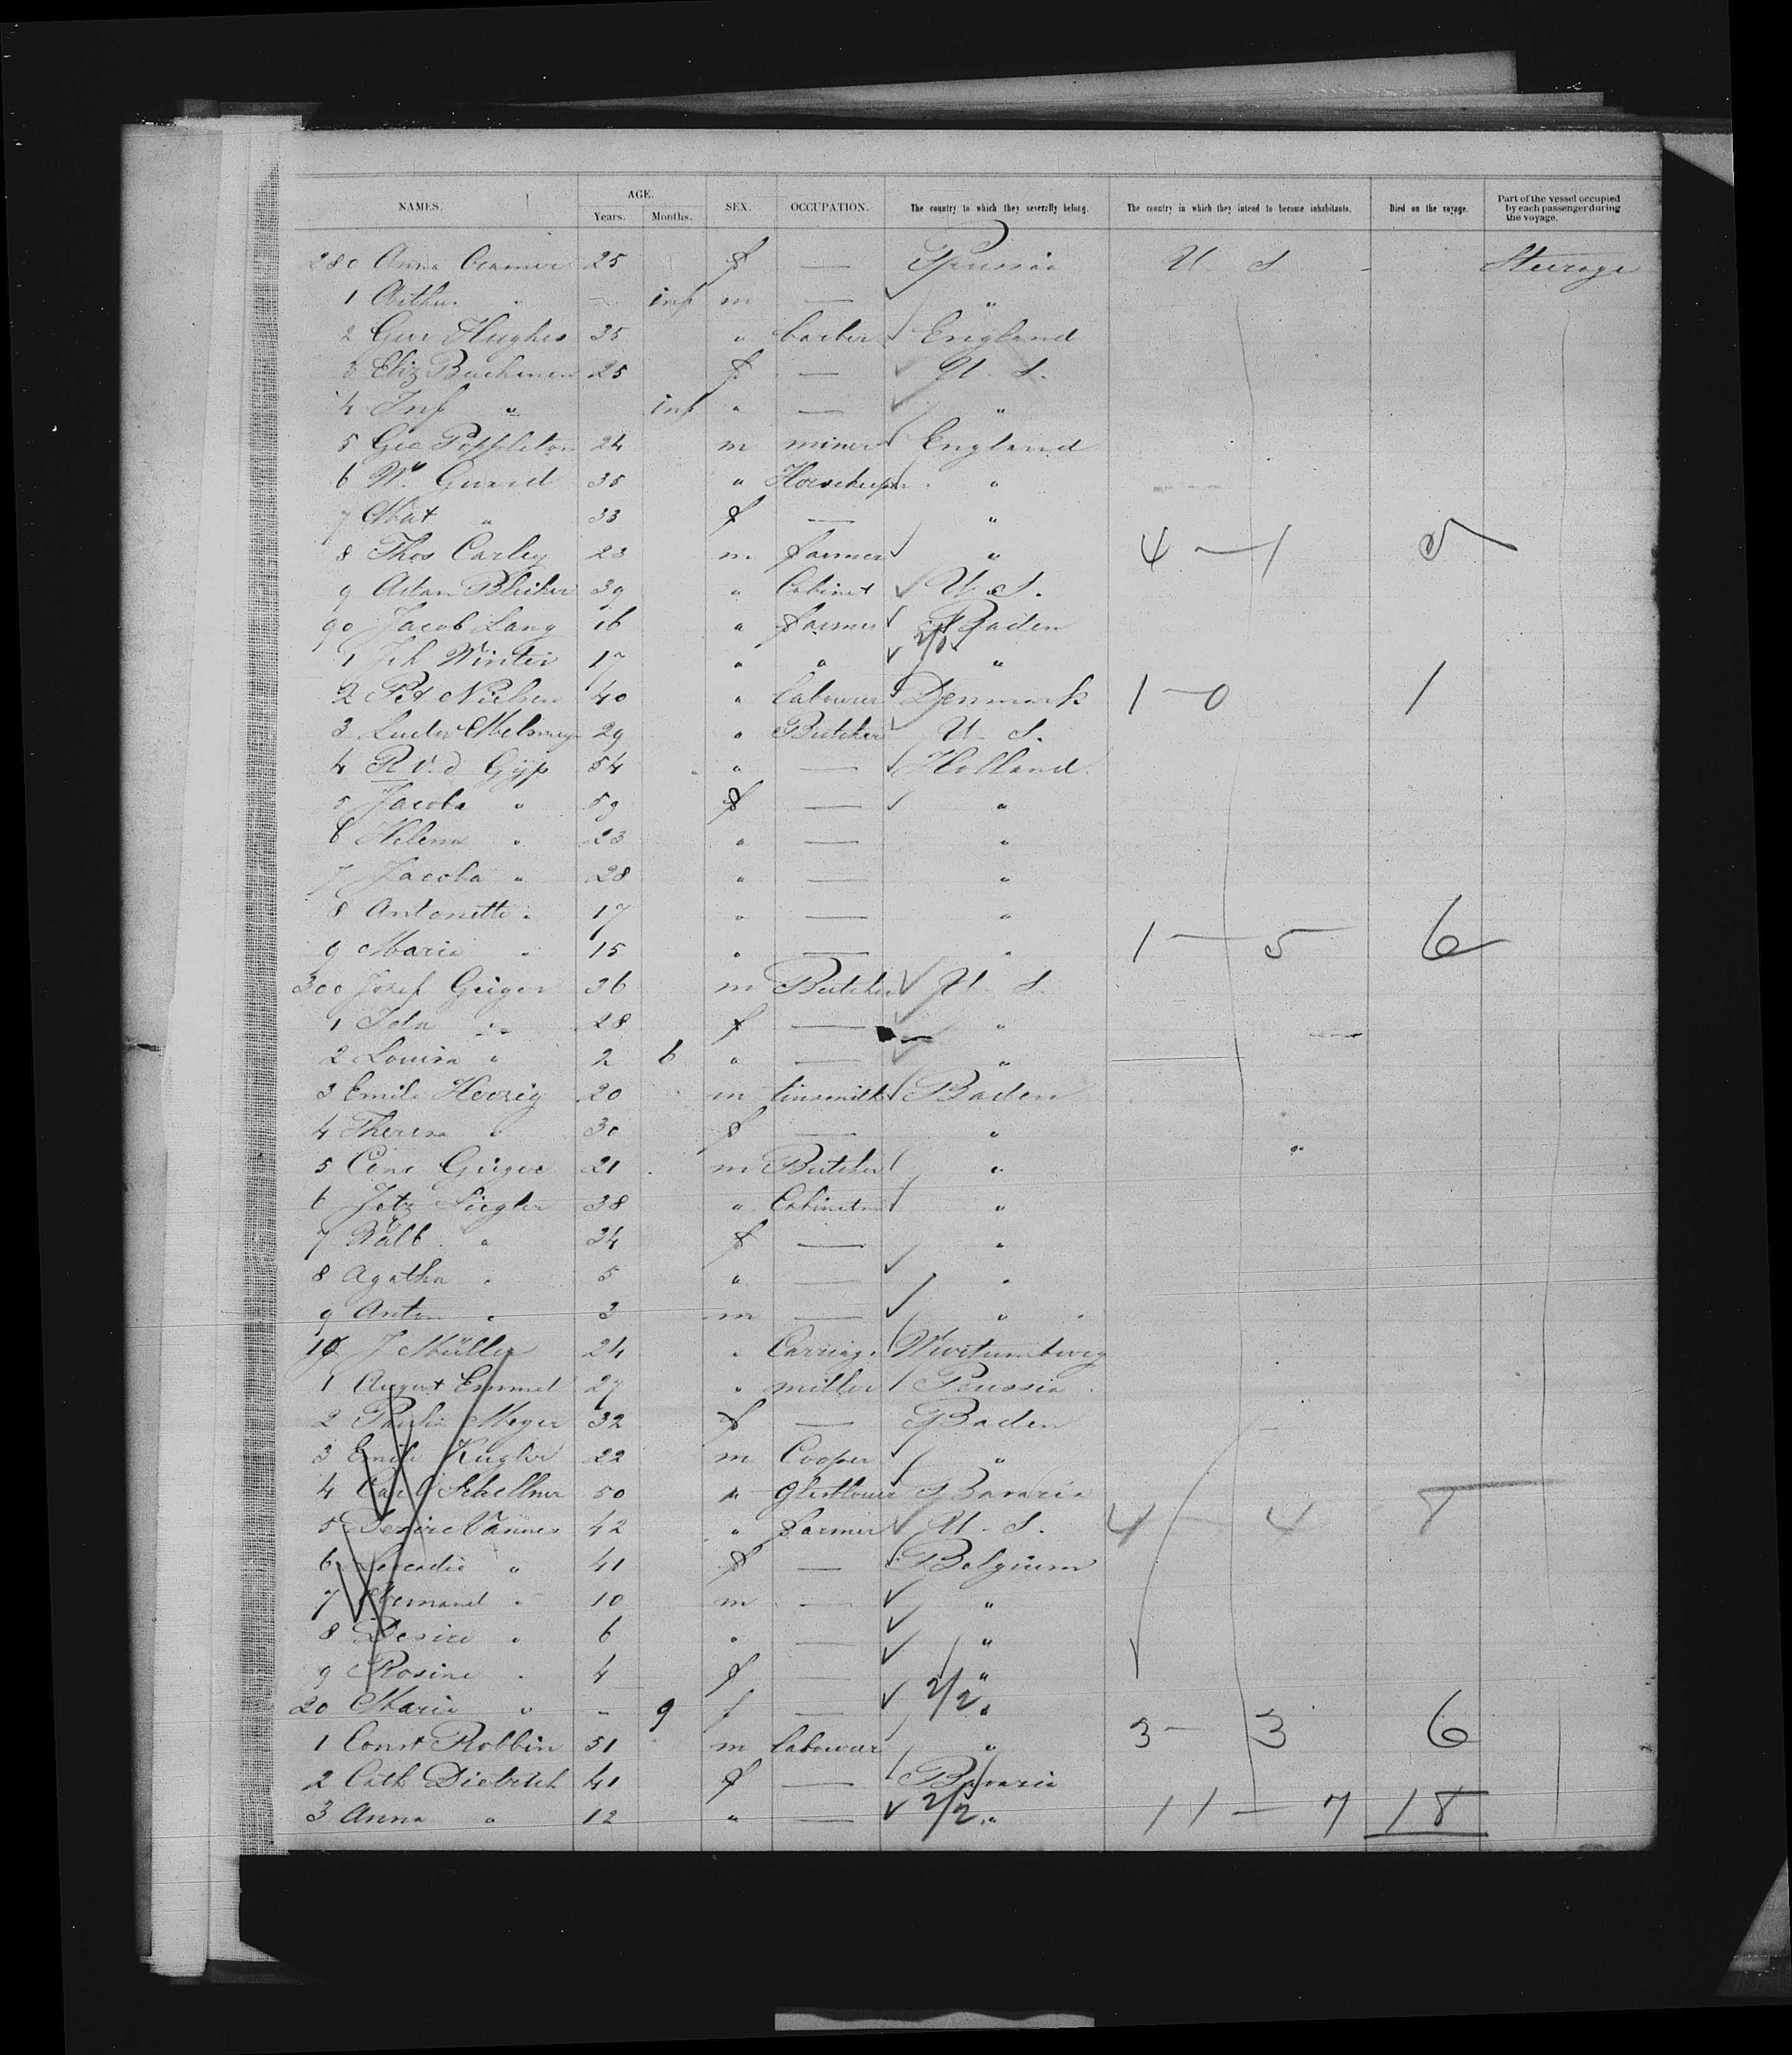 NAMES. AGE. SEX. OCCUPATION. The country to which they severally belong. The country in which they intend to become inhabitants. Died on the voyage. Part of the vessel occupied by each passenger during the voyage.
Years. Months.
280 Anna Cramer 25 f — Prussia U. S. Steerage
1 Arthur " — inf m — "
2 Geo Hughes 35 " barber England
3 Eliz Buchanan 25 f — U. S.
4 Inf " inf " — "
5 Geo Poppleton 24 m miner England
6 Wm Guard 35 " "
7 " 33 f — "
8 Thos Carley 23 m farmer " 4 — 1 5
9 Adam Bleicher 39 " Cabinet U. S.
90 Jacob Lang 16 " farmer Baden
1 Joh Winter 17 " " "
2 Pet Nielsen 40 " labourer Denmark 1 — 0 1
3 29 " Butcher U. S.
4 R. v. d. Gyp 54 " — Holland
5 Jacoba " 59 f — "
6 Helena " 23 " — "
7 Jacoba " 28 " — "
8 Antonette " 17 " — "
9 Maria " 15 " — " 1 — 5 6
300 Josef Geiger 36 m Butcher U. S.
1 Ida " 28 f — "
2 Louisa " 2 6 " — "
3 Emile Herzig 20 m tinsmith Baden
4 Theresa " 30 f — "
5 Geiger 21 m Butcher "
6 Siegler 38 " "
7 Walb. " 34 f — "
8 Agatha " 5 " — "
9 Anton " 3 m — "
10 J Müller 24 " Carriage
1 August Emmel 27 " miller Prussia
2 Meyer 32 f — Baden
3 Emile Kugler 22 m Cooper "
4 Carl Schellner 50 " Bavaria
5 Desire Vannes 42 " farmer U. S. 4 — 4 8
6 Leocadie " 41 f — Belgium
7 " 10 m — "
8 Desire " 6 " — "
9 Rosine " 4 f — "
20 Maria " — 9 f — 2/2 "
1 Const Robbin 51 m labourer " 3 — 3 6
2 Cath Dietrich 41 f — Bavaria
3 Anna " 12 " — 2/2 " 11 — 7 18